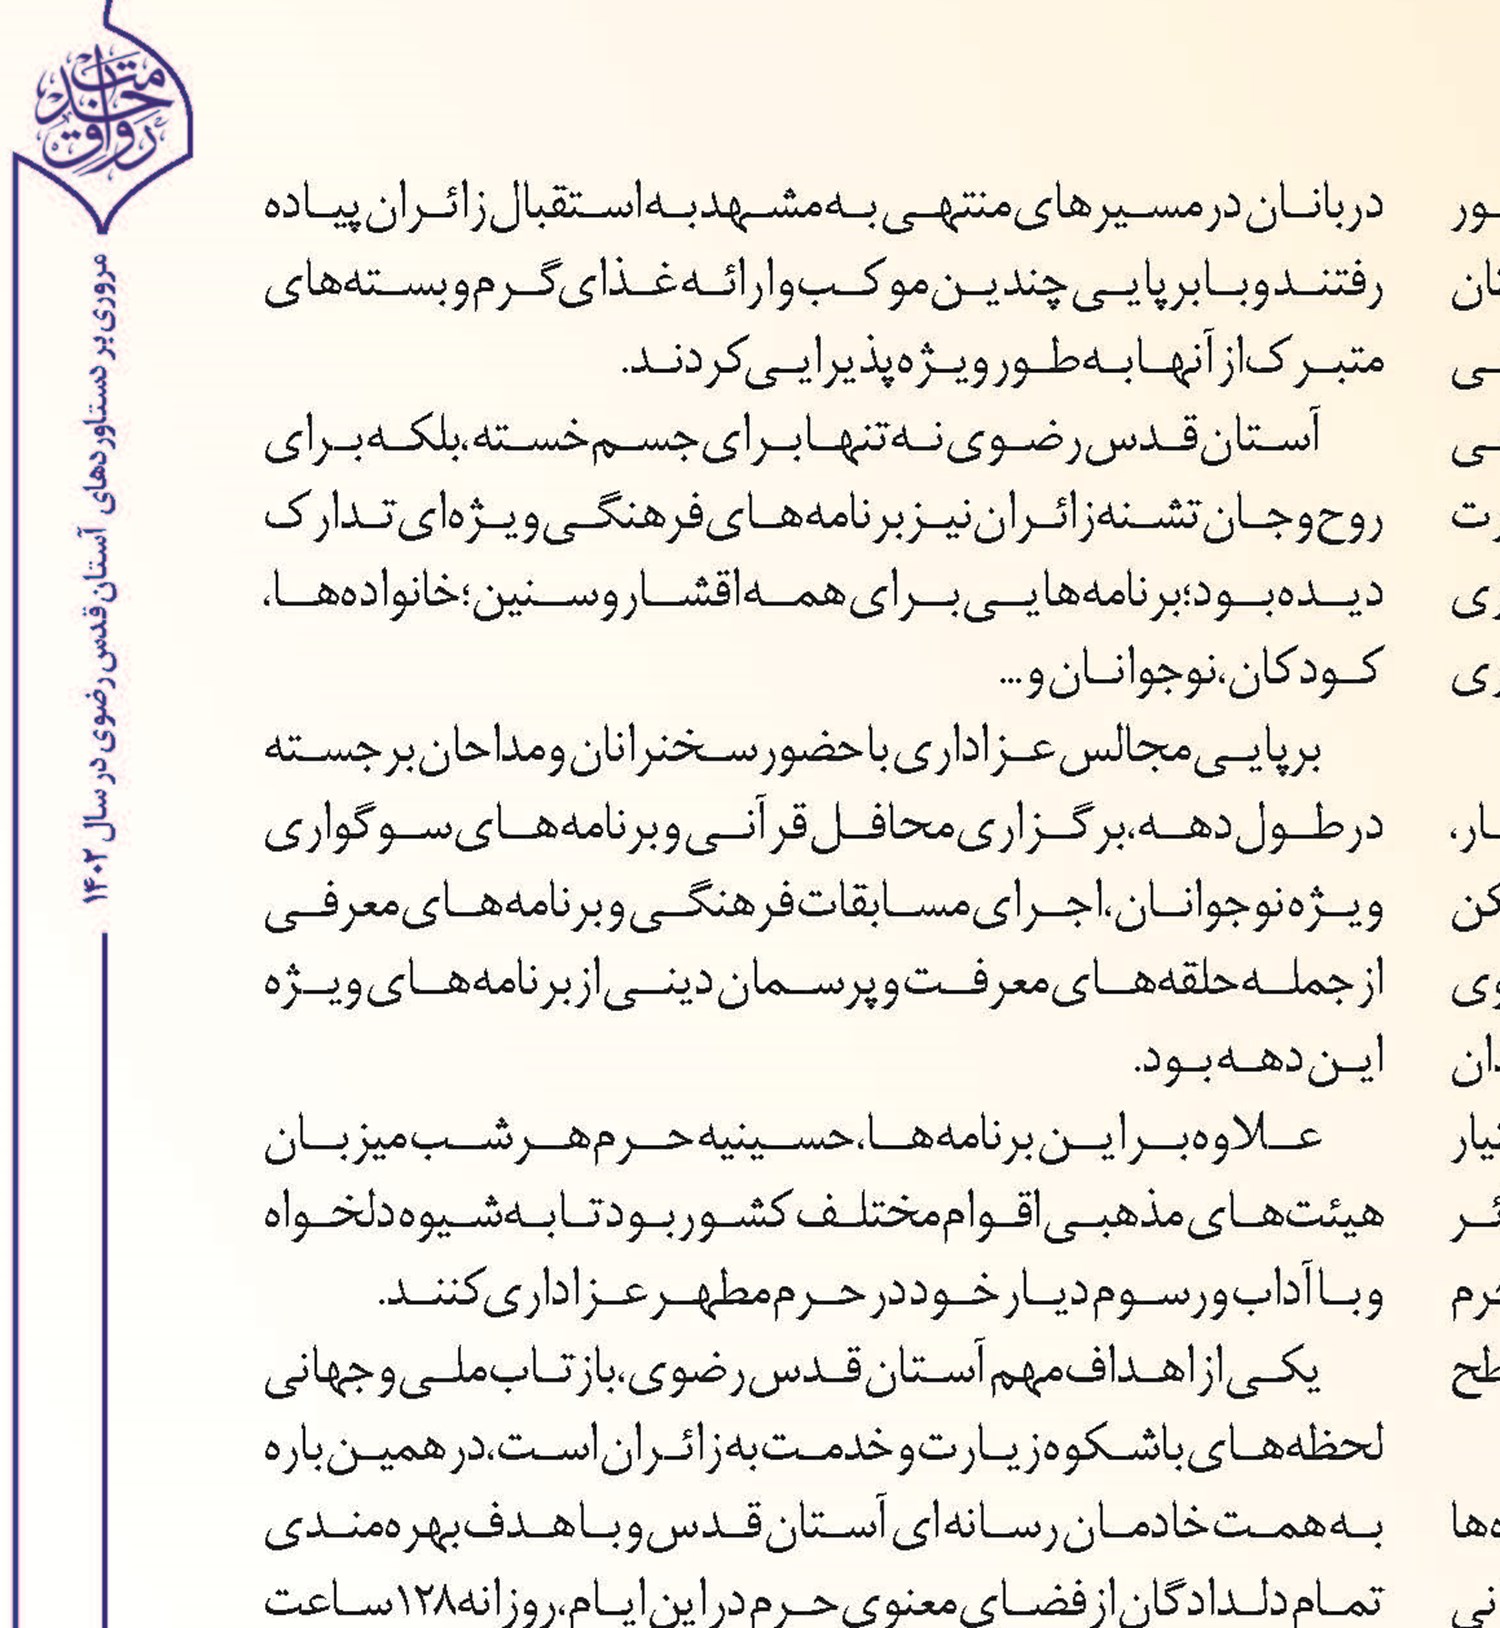 ـور
ـان
ـی
ـی
رت
ری
ری
ـار،
کن
وی
دان
ـیار
ئـر
حرم
طح
ه‌ها
نی
دربانان در مسیرهای منتهی به مشهد به استقبال زائران پیاده
رفتند و با برپایی چندین موکب و ارائه غذای گرم و بسته‌های
متبرک از آنها به طور ویژه پذیرایی کردند.
آستان قدس رضوی نه تنها برای جسم خسته، بلکه برای
روح و جان تشنه زائران نیز برنامه‌های فرهنگی ویژه‌ای تدارک
دیده بود؛ برنامه‌هایی برای همه اقشار و سنین؛ خانواده‌ها،
کودکان، نوجوانان و...
برپایی مجالس عزاداری با حضور سخنرانان و مداحان برجسته
در طول دهه، برگزاری محافل قرآنی و برنامه‌های سوگواری
ویژه نوجوانان، اجرای مسابقات فرهنگی و برنامه‌های معرفی
از جمله حلقه‌های معرفت و پرسمان دینی از برنامه‌های ویژه
این دهه بود.
علاوه بر این برنامه‌ها، حسینیه حرم هر شب میزبان
هیئت‌های مذهبی اقوام مختلف کشور بود تا به شیوه دلخواه
و با آداب و رسوم دیار خود در حرم مطهر عزاداری کنند.
یکی از اهداف مهم آستان قدس رضوی، بازتاب ملی و جهانی
لحظه‌های باشکوه زیارت و خدمت به زائران است، در همین باره
به همت خادمان رسانه‌ای آستان قدس و با هدف بهره‌مندی
تمام دلدادگان از فضای معنوی حرم در این ایام، روزانه ۱۲۸ ساعت
مروری بر دستاوردهای آستان قدس رضوی در سال ۱۴۰۲